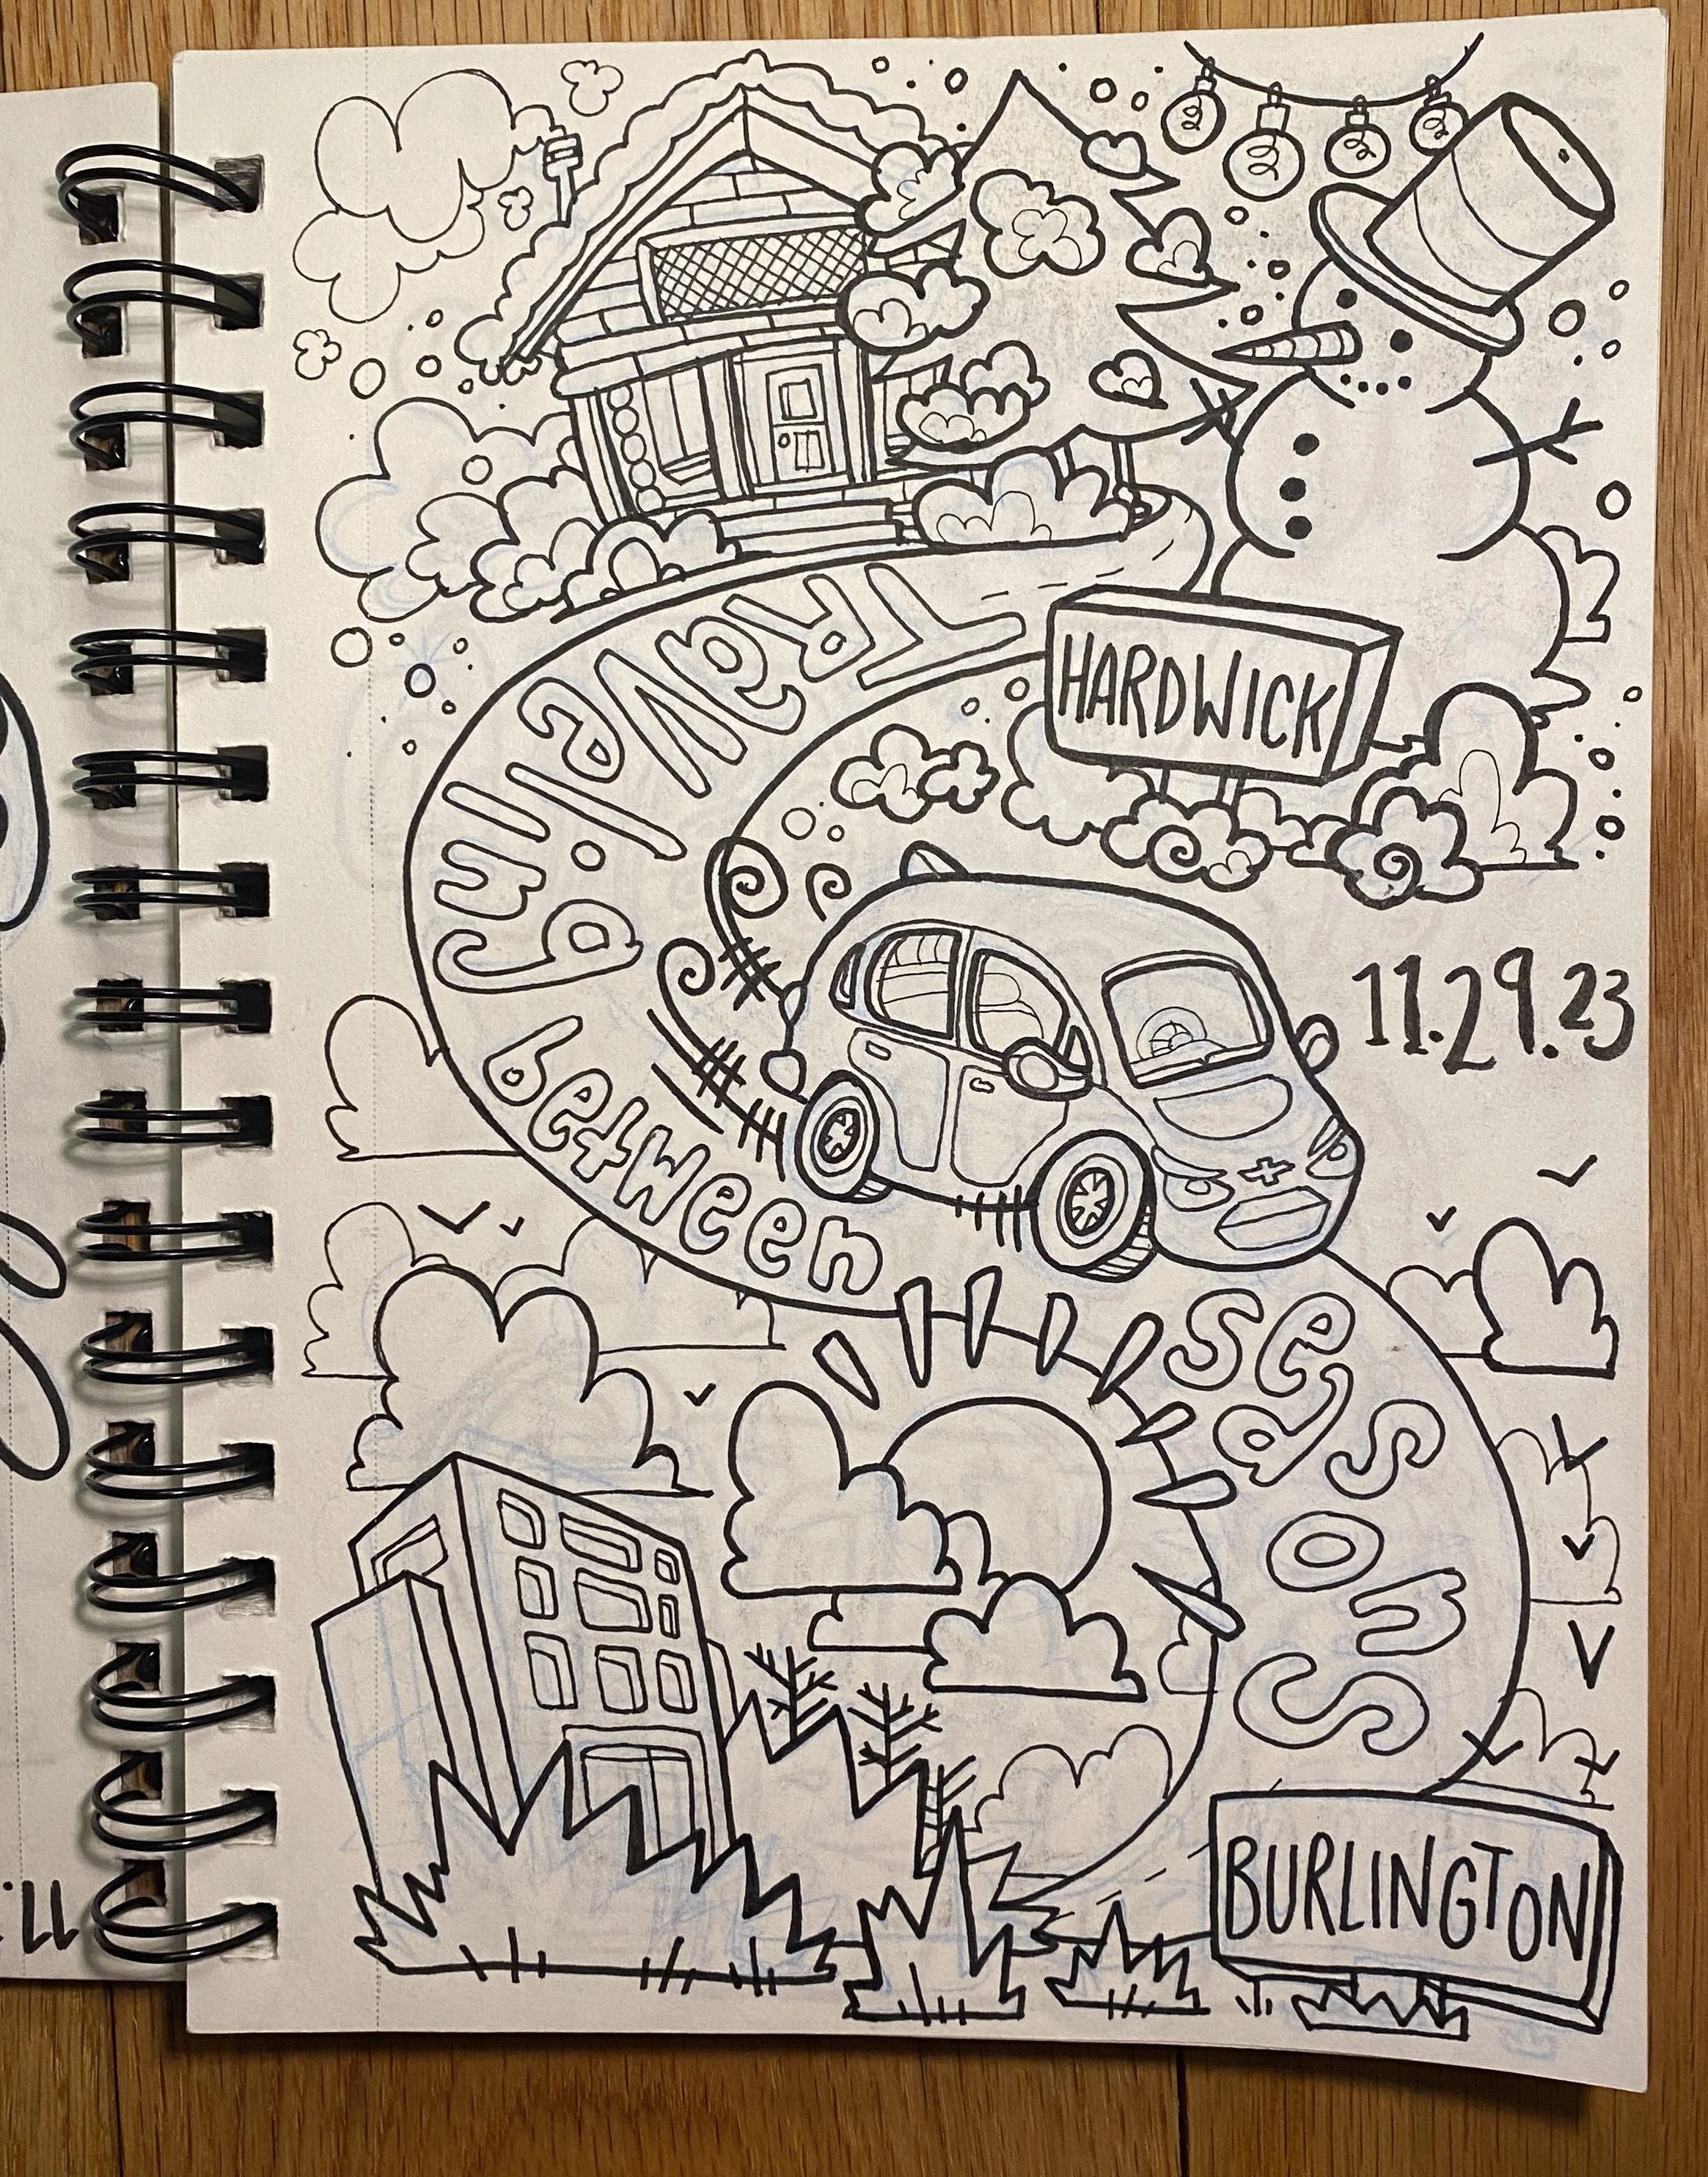 TRaveling
HARDWICK
11.29.23
between
seasons
BURLINGTON
11.